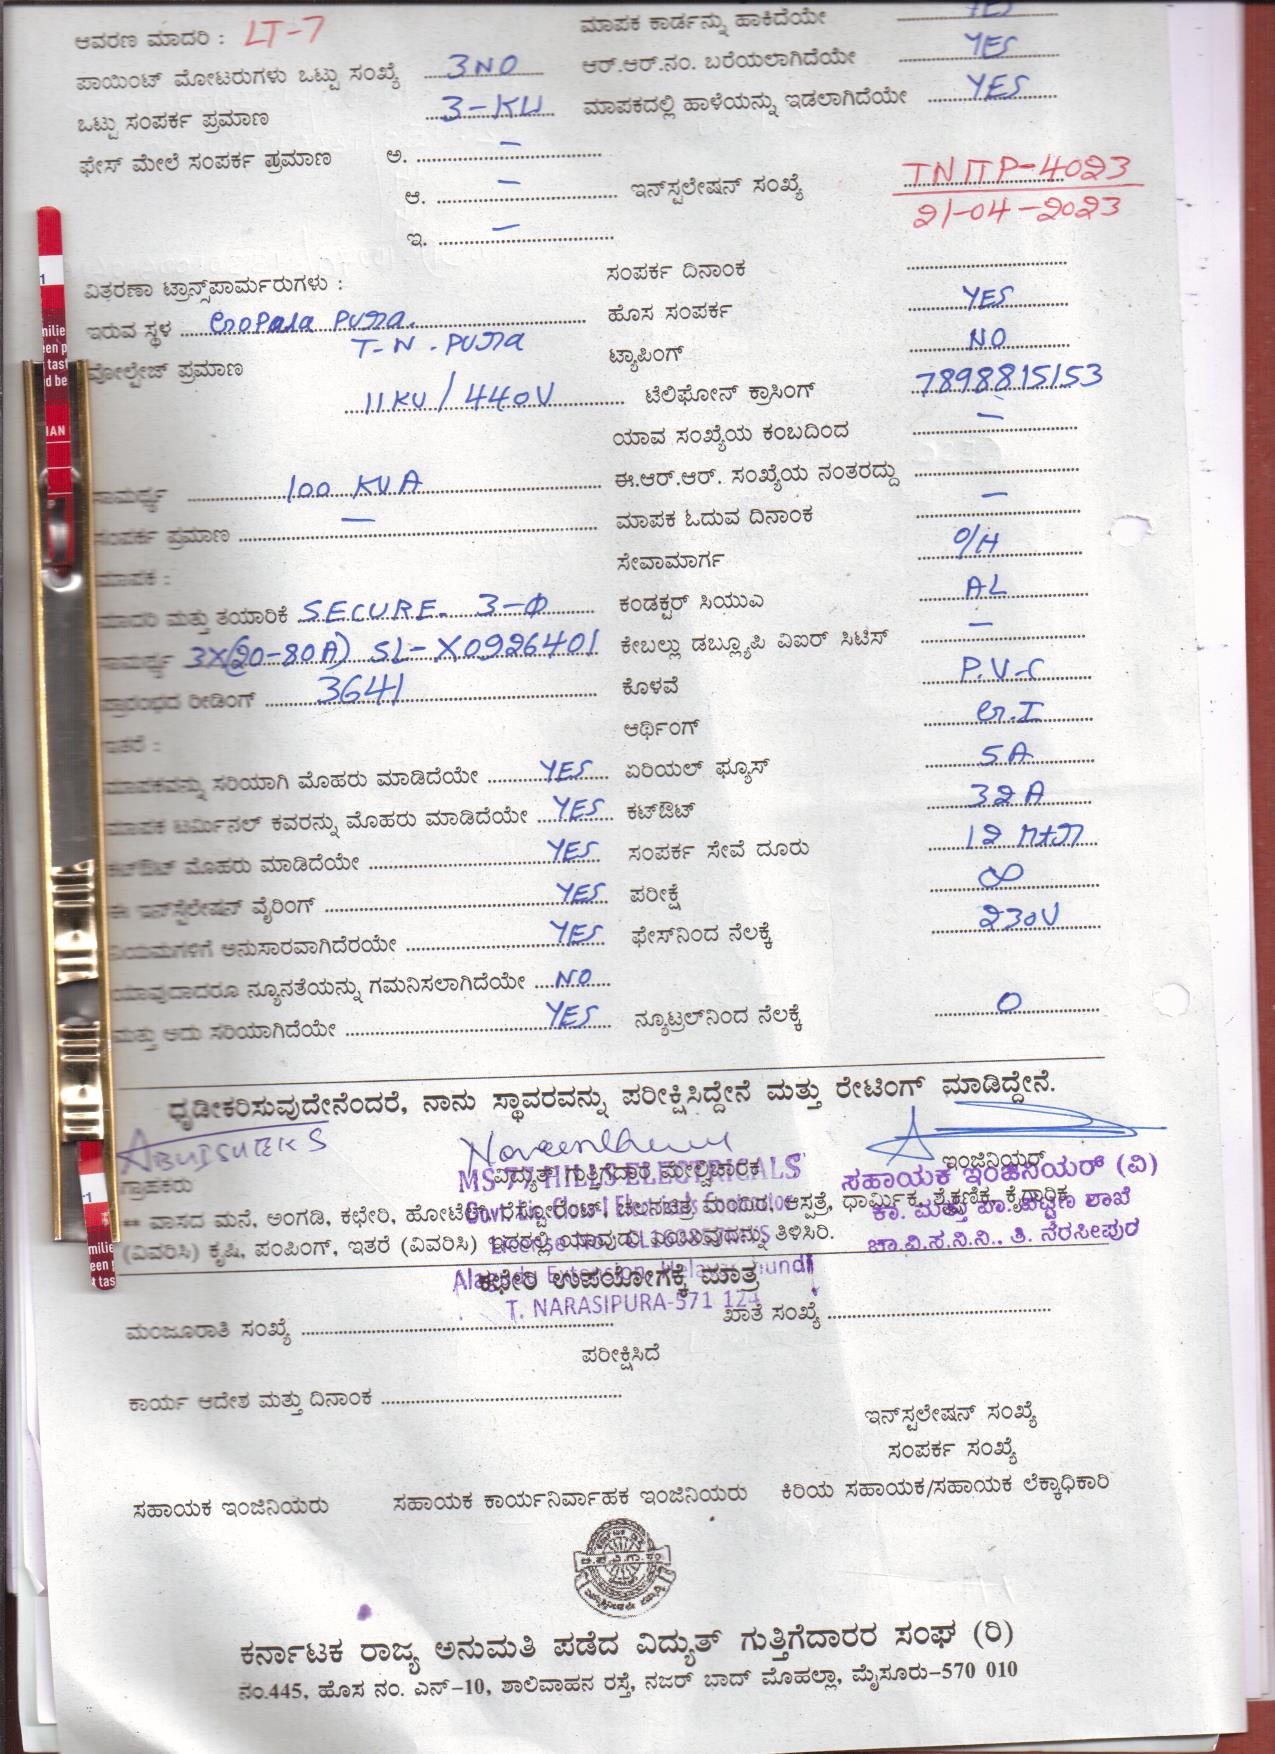 YES
ಆವರಣ ಮಾದರಿ : LT-7 ಮಾಪಕ ಕಾರ್ಡನ್ನು ಹಾಕಿದೆಯೇ
ಪಾಯಿಂಟ್ ಮೋಟರುಗಳು ಒಟ್ಟು ಸಂಖ್ಯೆ 3NO ಆರ್.ಆರ್.ನಂ. ಬರೆಯಲಾಗಿದೆಯೇ YES
ಒಟ್ಟು ಸಂಪರ್ಕ ಪ್ರಮಾಣ 3-KW ಮಾಪಕದಲ್ಲಿ ಹಾಳೆಯನ್ನು ಇಡಲಾಗಿದೆಯೇ YES
ಫೇಸ್ ಮೇಲೆ ಸಂಪರ್ಕ ಪ್ರಮಾಣ ಅ. –
ಆ. – ಇನ್‌ಸ್ಟಲೇಷನ್ ಸಂಖ್ಯೆ TNTP-4023
21-04-2023
ಇ. –
ವಿತರಣಾ ಟ್ರಾನ್ಸ್‌ಪಾರ್ಮರುಗಳು : ಸಂಪರ್ಕ ದಿನಾಂಕ
ಇರುವ ಸ್ಥಳ Gopala Pura. ಹೊಸ ಸಂಪರ್ಕ YES
T-N. Pura
ವೋಲ್ಟೇಜ್ ಪ್ರಮಾಣ ಟ್ಯಾಪಿಂಗ್ NO
11KV/440V ಟೆಲಿಫೋನ್ ಕ್ರಾಸಿಂಗ್ 7898815153
ಯಾವ ಸಂಖ್ಯೆಯ ಕಂಬದಿಂದ –
ಸಾಮರ್ಥ್ಯ 100 KVA ಈ.ಆರ್.ಆರ್. ಸಂಖ್ಯೆಯ ನಂತರದ್ದು
ಸಂಪರ್ಕ ಪ್ರಮಾಣ – ಮಾಪಕ ಓದುವ ದಿನಾಂಕ –
ಮಾಪಕ : ಸೇವಾಮಾರ್ಗ O/H
ಮಾದರಿ ಮತ್ತು ತಯಾರಿಕೆ SECURE. 3-Φ ಕಂಡಕ್ಟರ್ ಸಿಯುಎ AL
ಸಾಮರ್ಥ್ಯ 3X(20-80A) SL-X0926401 ಕೇಬಲ್ಲು ಡಬ್ಲ್ಯೂಪಿ ವಿಐರ್ ಸಿಟಿಸ್ –
ಪ್ರಾರಂಭದ ರೀಡಿಂಗ್ 3641 ಕೊಳವೆ P.V-C
ಇತರೆ : ಆರ್ಥಿಂಗ್ G.I
ಮಾಪಕವನ್ನು ಸರಿಯಾಗಿ ಮೊಹರು ಮಾಡಿದೆಯೇ YES ಏರಿಯಲ್ ಫ್ಯೂಸ್ 5A
ಮಾಪಕ ಟರ್ಮಿನಲ್ ಕವರನ್ನು ಮೊಹರು ಮಾಡಿದೆಯೇ YES ಕಟ್‌ಔಟ್ 32A
ಕಟ್‌ಔಟ್ ಮೊಹರು ಮಾಡಿದೆಯೇ YES ಸಂಪರ್ಕ ಸೇವೆ ದೂರು 12 mtr
ಈ ಇನ್‌ಸ್ಟೆಲೇಷನ್ ವೈರಿಂಗ್ YES ಪರೀಕ್ಷೆ ∞
ನಿಯಮಗಳಿಗೆ ಅನುಸಾರವಾಗಿದೆರಯೇ YES ಫೇಸ್‌ನಿಂದ ನೆಲಕ್ಕೆ 230V
ಯಾವುದಾದರೂ ನ್ಯೂನತೆಯನ್ನು ಗಮನಿಸಲಾಗಿದೆಯೇ NO
ಮತ್ತು ಅದು ಸರಿಯಾಗಿದೆಯೇ YES ನ್ಯೂಟ್ರಲ್‌ನಿಂದ ನೆಲಕ್ಕೆ 0
ಧೃಡೀಕರಿಸುವುದೇನೆಂದರೆ, ನಾನು ಸ್ಥಾವರವನ್ನು ಪರೀಕ್ಷಿಸಿದ್ದೇನೆ ಮತ್ತು ರೇಟಿಂಗ್ ಮಾಡಿದ್ದೇನೆ.
ABHISHEK S
ಗ್ರಾಹಕರು ವಿದ್ಯುತ್ ಗುತ್ತಿಗೆದಾರ ಮೇಲ್ವಿಚಾರಕ ಇಂಜಿನಿಯರ್
MS 77 HILLS ELECTRICALS
ಸಹಾಯಕ ಇಂಜಿನಿಯರ್ (ವಿ)
ಕಾ. ಮತ್ತು ಪಾ. ಪಟ್ಟಣ ಶಾಖೆ
ಚಾ.ವಿ.ಸ.ನಿ.ನಿ., ತಿ. ನರಸೀಪುರ
** ವಾಸದ ಮನೆ, ಅಂಗಡಿ, ಕಛೇರಿ, ಹೋಟೆಲ್, ರೆಸ್ಟೋರೆಂಟ್, ಚಲನಚಿತ್ರ ಮಂದಿರ, ಆಸ್ಪತ್ರೆ, ಧಾರ್ಮಿಕ, ಶೈಕ್ಷಣಿಕ, ಕೈಗಾರಿಕ
(ವಿವರಿಸಿ) ಕೃಷಿ, ಪಂಪಿಂಗ್, ಇತರೆ (ವಿವರಿಸಿ) ಇದರಲ್ಲಿ ಯಾವುದು ಎಂಬುವುದನ್ನು ತಿಳಿಸಿರಿ.
ಕಛೇರಿ ಉಪಯೋಗಕ್ಕೆ ಮಾತ್ರ
T. NARASIPURA-571 124
ಮಂಜೂರಾತಿ ಸಂಖ್ಯೆ ಖಾತೆ ಸಂಖ್ಯೆ
ಪರೀಕ್ಷಿಸಿದೆ
ಕಾರ್ಯ ಆದೇಶ ಮತ್ತು ದಿನಾಂಕ
ಇನ್‌ಸ್ಟಲೇಷನ್ ಸಂಖ್ಯೆ
ಸಂಪರ್ಕ ಸಂಖ್ಯೆ
ಸಹಾಯಕ ಇಂಜಿನಿಯರು ಸಹಾಯಕ ಕಾರ್ಯನಿರ್ವಾಹಕ ಇಂಜಿನಿಯರು ಕಿರಿಯ ಸಹಾಯಕ/ಸಹಾಯಕ ಲೆಕ್ಕಾಧಿಕಾರಿ
ಕರ್ನಾಟಕ ರಾಜ್ಯ ಅನುಮತಿ ಪಡೆದ ವಿದ್ಯುತ್ ಗುತ್ತಿಗೆದಾರರ ಸಂಘ (ರಿ)
ನಂ.445, ಹೊಸ ನಂ. ಎನ್–10, ಶಾಲಿವಾಹನ ರಸ್ತೆ, ನಜರ್ ಬಾದ್ ಮೊಹಲ್ಲಾ, ಮೈಸೂರು–570 010